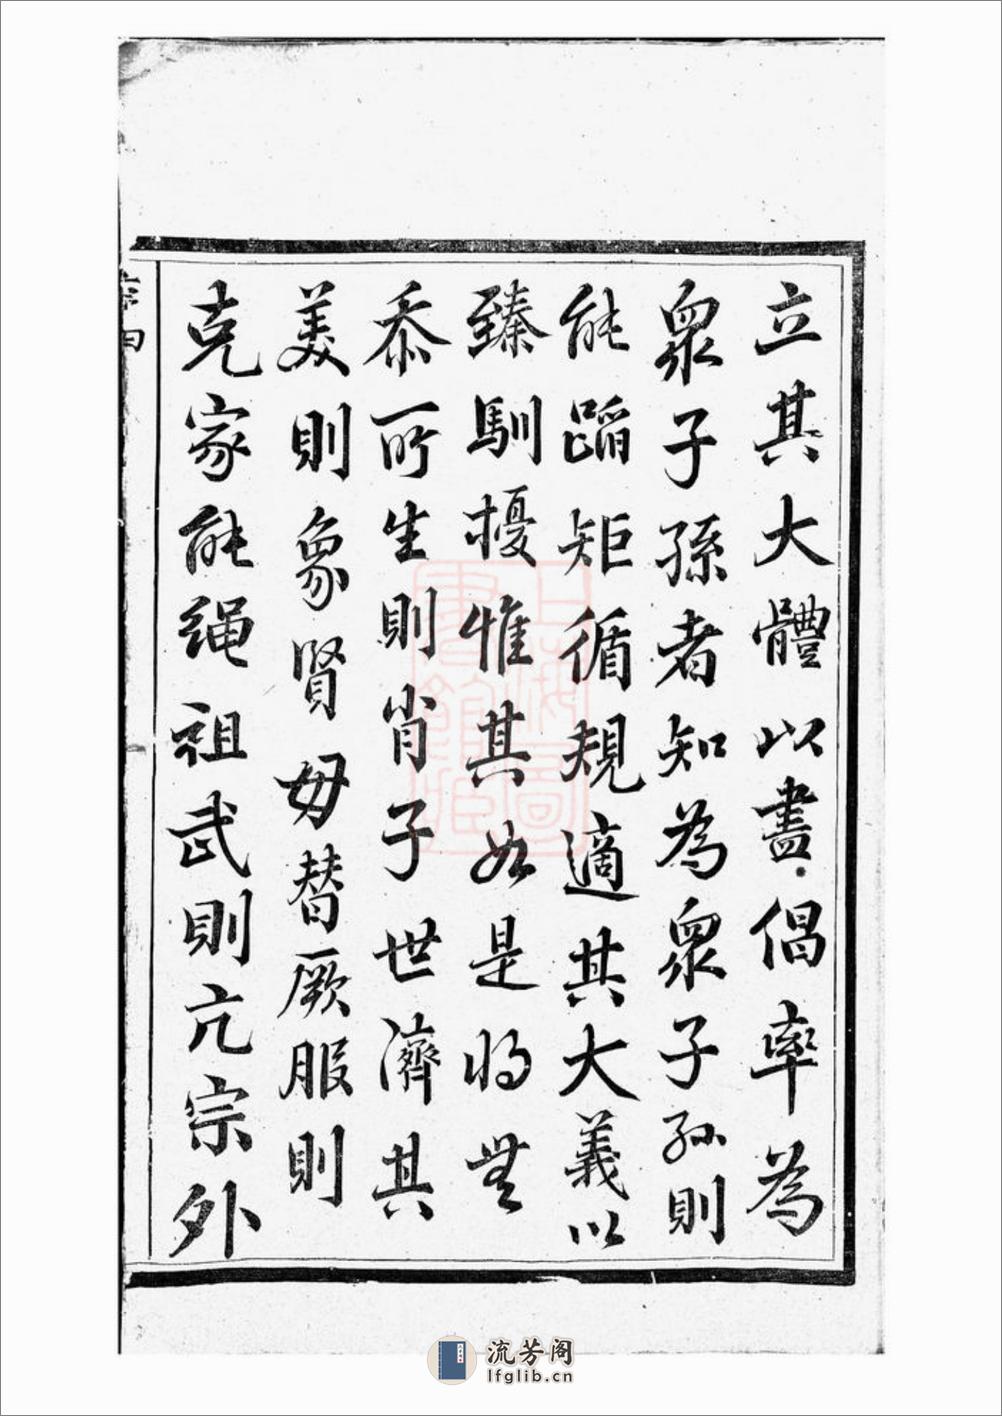 立其大體以盡倡率為
眾子孫者知為眾子孫則
能蹈矩循規適其大義以
臻馴擾惟其如是將無
忝所生則肖子世濟其
美則象賢毋替厥服則
克家能绳祖武則亢宗外
序四
上海圖書館藏
流芳阁
lfglib.cn